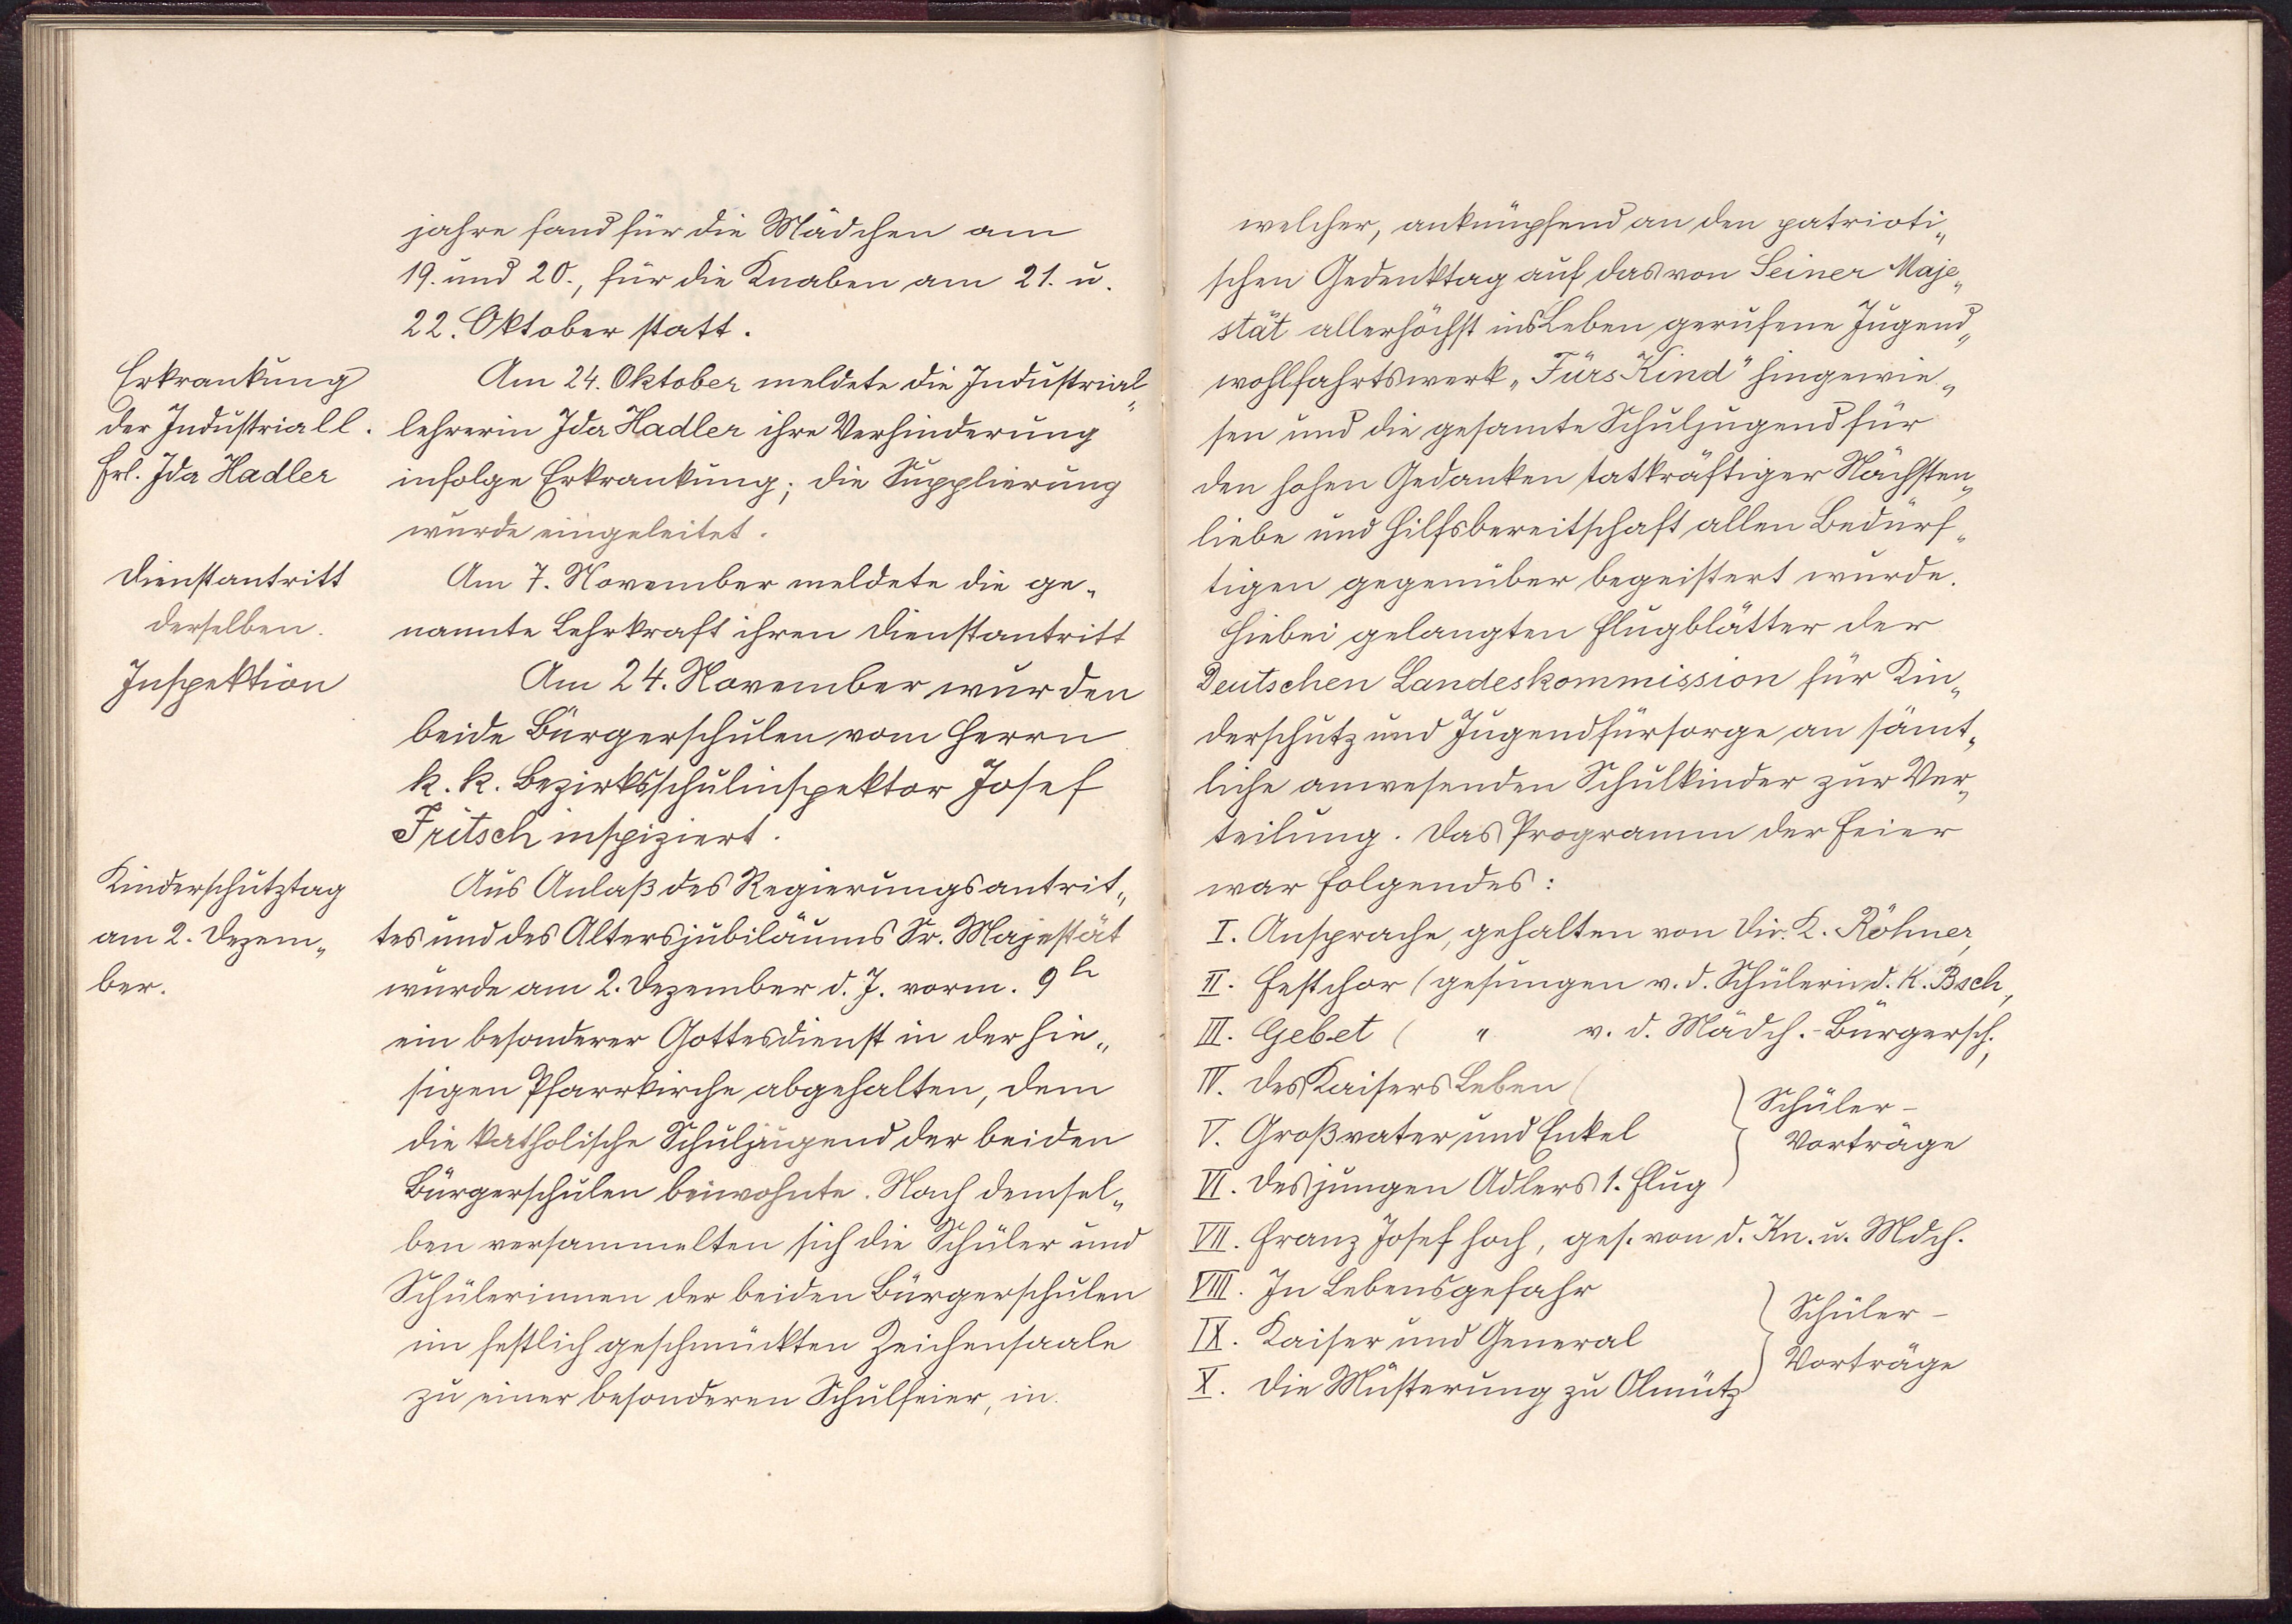 jahre fand für die Mädchen am
19. und 20., für die Knaben am 21. u.
22. Oktober statt.
Erkrankung
der Industriall.
Frl. Ida Hadler
Am 24. Oktober meldete die Industrial„
lehrerin Ida Hadler ihre Verhinderung
infolge Erkrankung; die Supplierung
wurde eingeleitet.
Dienstantritt
derselben.
Am 7. November meldete die ge„
nannte Lehrkraft ihren Dienstantritt
Inspektion
Am 24. November wurden
beide Bürgerschulen vom Herrn
k. k. Bezirksschulinspektor Josef
Fritsch inspiziert.
Kinderschutztag
am 2. Dezem„
ber.
Aus Anlaß des Regierungsantrit„
tes und des Altersjubiläums Sr. Majestät
wurde am 2. Dezember d. J. vorm. 9h
ein besonderer Gottesdienst in der hie„
sigen Pfarrkirche abgehalten, dem
die katholische Schuljugend der beiden
Bürgerschulen beiwohnte. Nach demsel„
ben versammelten sich die Schüler und
Schülerinnen der beiden Bürgerschulen
im festlich geschmückten Zeichensaale
zu einer besonderen Schulfeier, in
welcher, anknüpfend an den patrioti„
schen Gedenktag auf das von Seiner Maje„
stät allerhöchst ins Leben gerufene Jugend„
wohlfahrtswerk „Fürs Kind" hingewie„
sen und die gesamte Schuljugend für
den hohen Gedanken tatkräftiger Nächsten„
liebe und Hilfsbereitschaft allen Bedürf„
tigen gegenüber begeistert wurde.
Hiebei gelangten Flugblätter der
Deutschen Landeskommission für Kin„
derschutz und Jugendfürsorge an sämt„
liche anwesenden Schulkinder zur Ver„
teilung. Das Programm der Feier
war folgendes:
I. Ansprache, gehalten von Dir. K. Röhner,
II. Festchor (gesungen v. d. Schülerin d. K. Bsch,
III. Gebet ( " v. d. Mädch.-Bürgersch.,
IV. Des Kaisers Leben (
V. Großvater und Enkel
VI. Des jungen Adlers 1. Flug
Schüler-
Vorträge
VII. Franz Josef hoch, ges. von d. Kn. u. Mdch.
VIII. In Lebensgefahr
IX. Kaiser und General
X. Die Musterung zu Olmütz
Schüler-
Vorträge